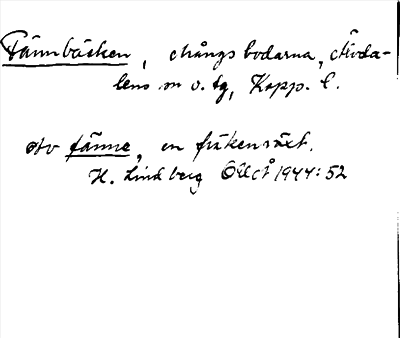 Fännbäcken, Långsbodarna, Älvda-
lens sn o. tg, Kopp. l.
Av fänne, en fräkenväxt.
H. Lindberg ÖÄCÅ 1944:52